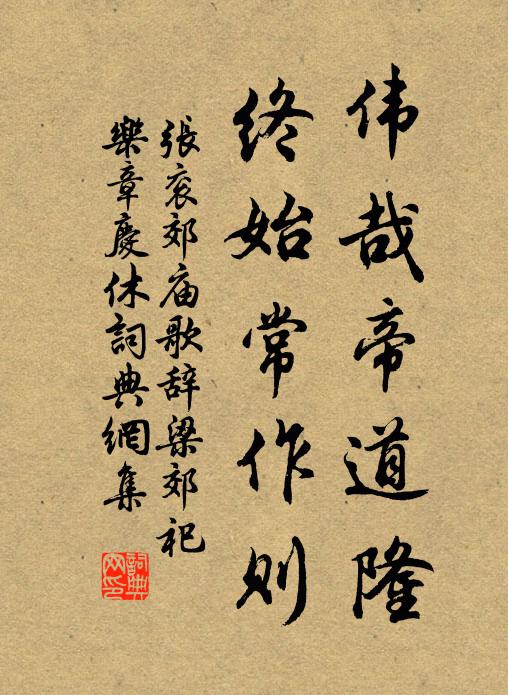 伟哉帝道隆
终始常作则
張衮郊庙歌辞梁郊祀
樂章慶休詞典網集
詞典网印